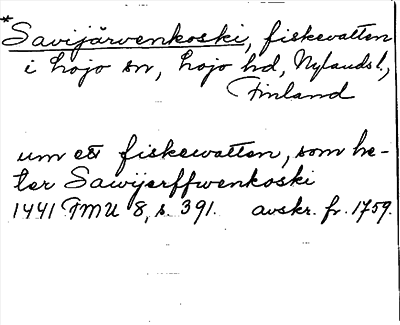 * Savijärvenkoski, fiskevatten
i Lojo sn, Lojo hd, Nylands l.,
Finland
um ett fiskewatten, som he-
ter Sawijerffwenkoski
1441 FMU 8, s. 391. avskr. fr. 1759.